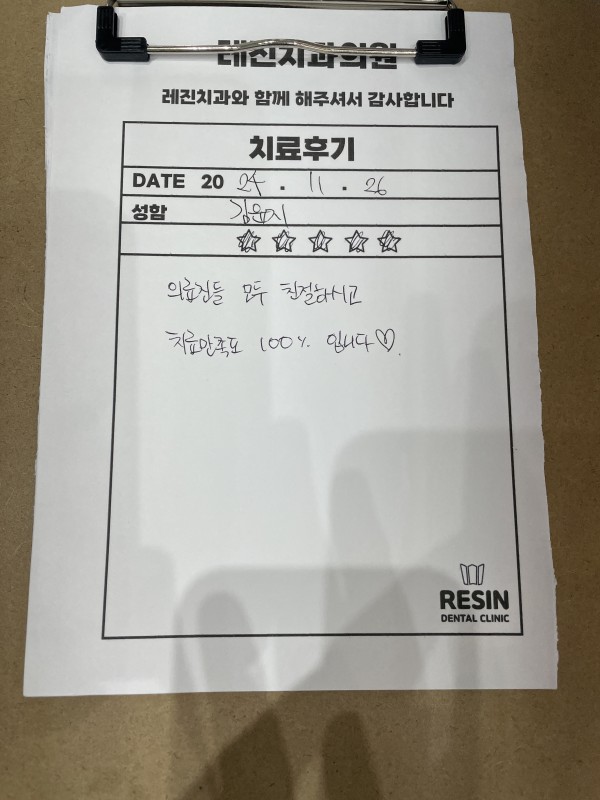 레진치과의원
레진치과와 함께 해주셔서 감사합니다
치료후기
DATE 20 24 . 11 . 26
성함 김윤지
의료진들 모두 친절하시고
치료만족도 100% 입니다♡.
RESIN
DENTAL CLINIC